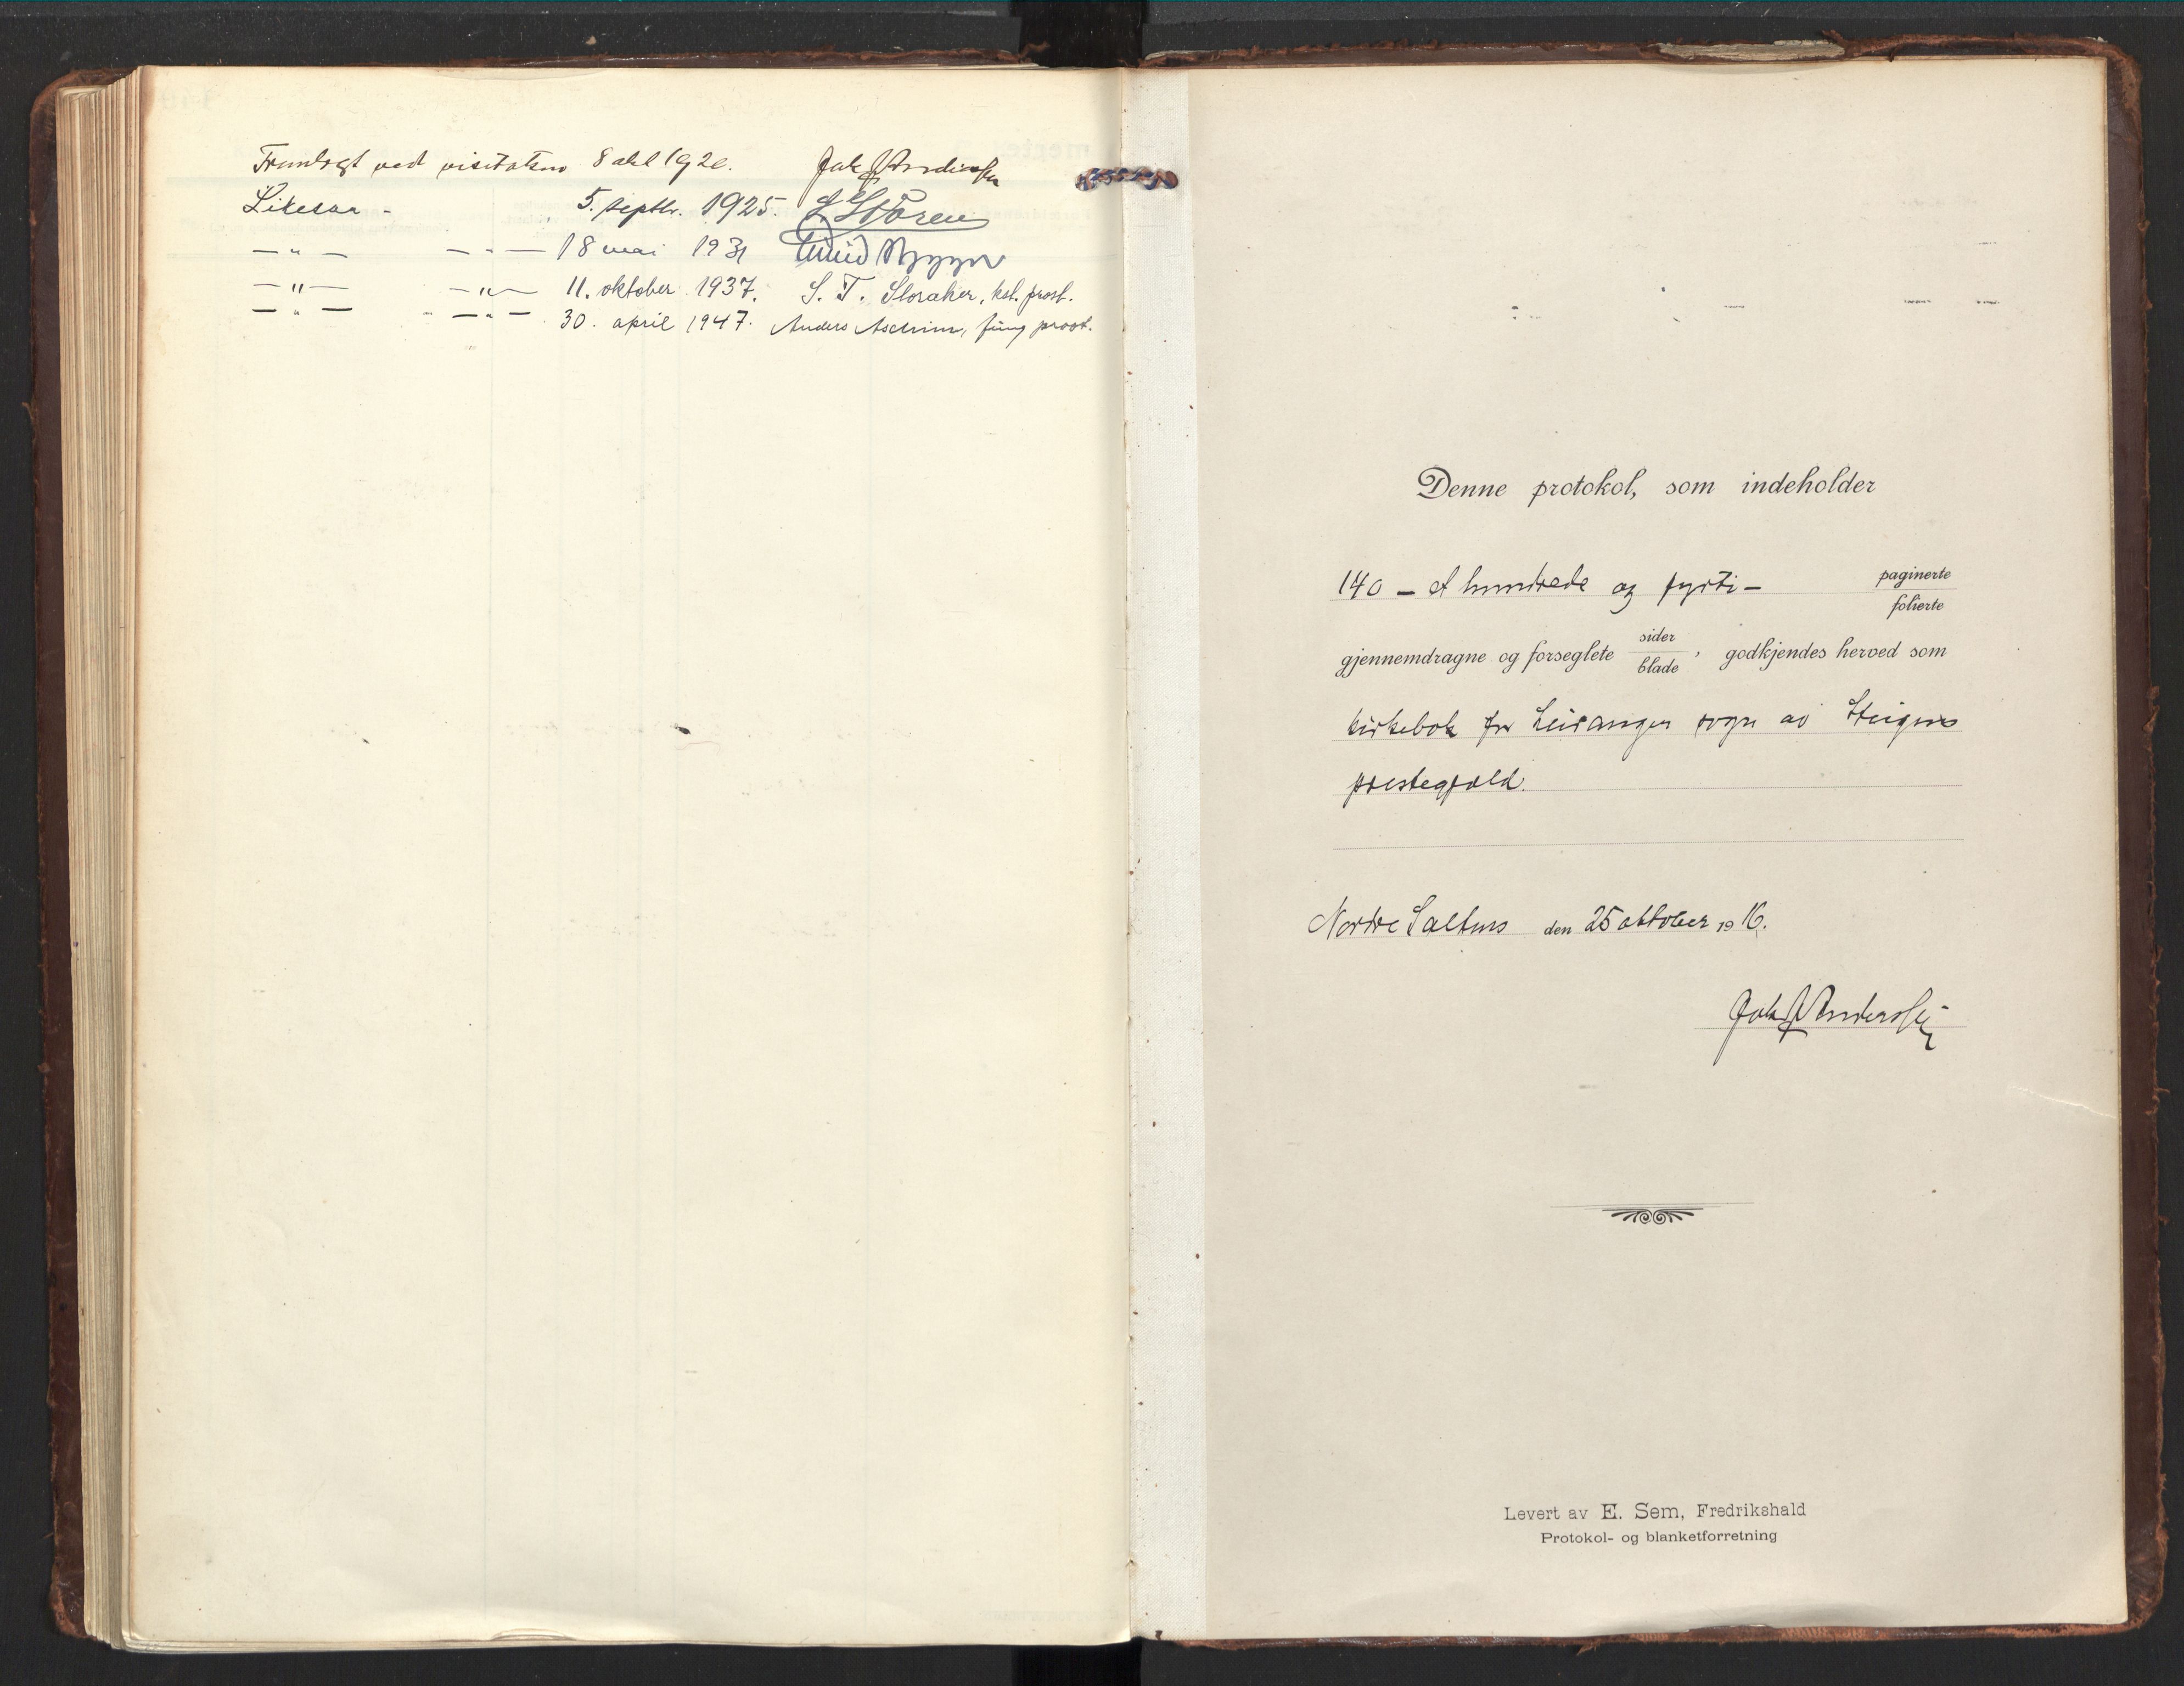 Fremlagt ved visitatsen 8 okt 1920. Jak J Anderssen
Likesaa - 5. septbr. 1925. Støren
— " — — " — 18 mai 1931
— " — — " — 11. oktober 1937. S. T. Sloraker, kst. prost.
— " — — " — 30. april 1947. Anders Aschim, fung prost.
Denne protokol, som indeholder
140 — et hundrede og fyrti — paginerte
folierte
gjennemdragne og forseglete sider
blade, godkjendes herved som
kirkebok for Leiranger sogn av Steigens
prestegjeld.
Nordre Saltens den 25 oktober 1916.
Jak J Anderssen
Levert av E. Sem, Fredrikshald
Protokol- og blanketforretning